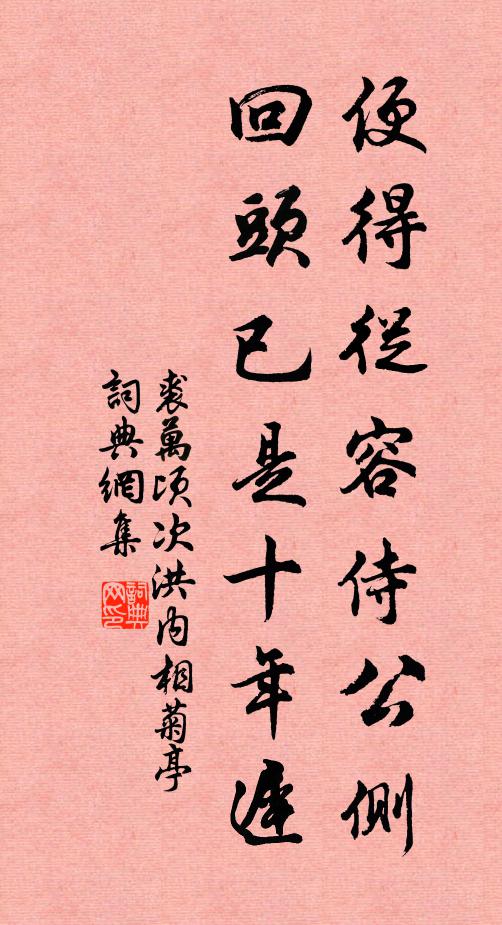 便得從容侍公側
回頭已是十年遲
裘萬頃次洪内相菊亭
詞典網集
詞典网印